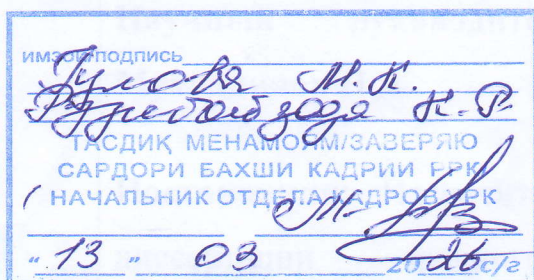 ИМЗОИ/ПОДПИСЬ
Гулова М.К.
К.Р.
ТАСДИҚ МЕНАМОЯМ/ЗАВЕРЯЮ
САРДОРИ БАХШИ КАДРИИ РРК
НАЧАЛЬНИК ОТДЕЛА КАДРОВ УРК
"13" 03 2026 с/г